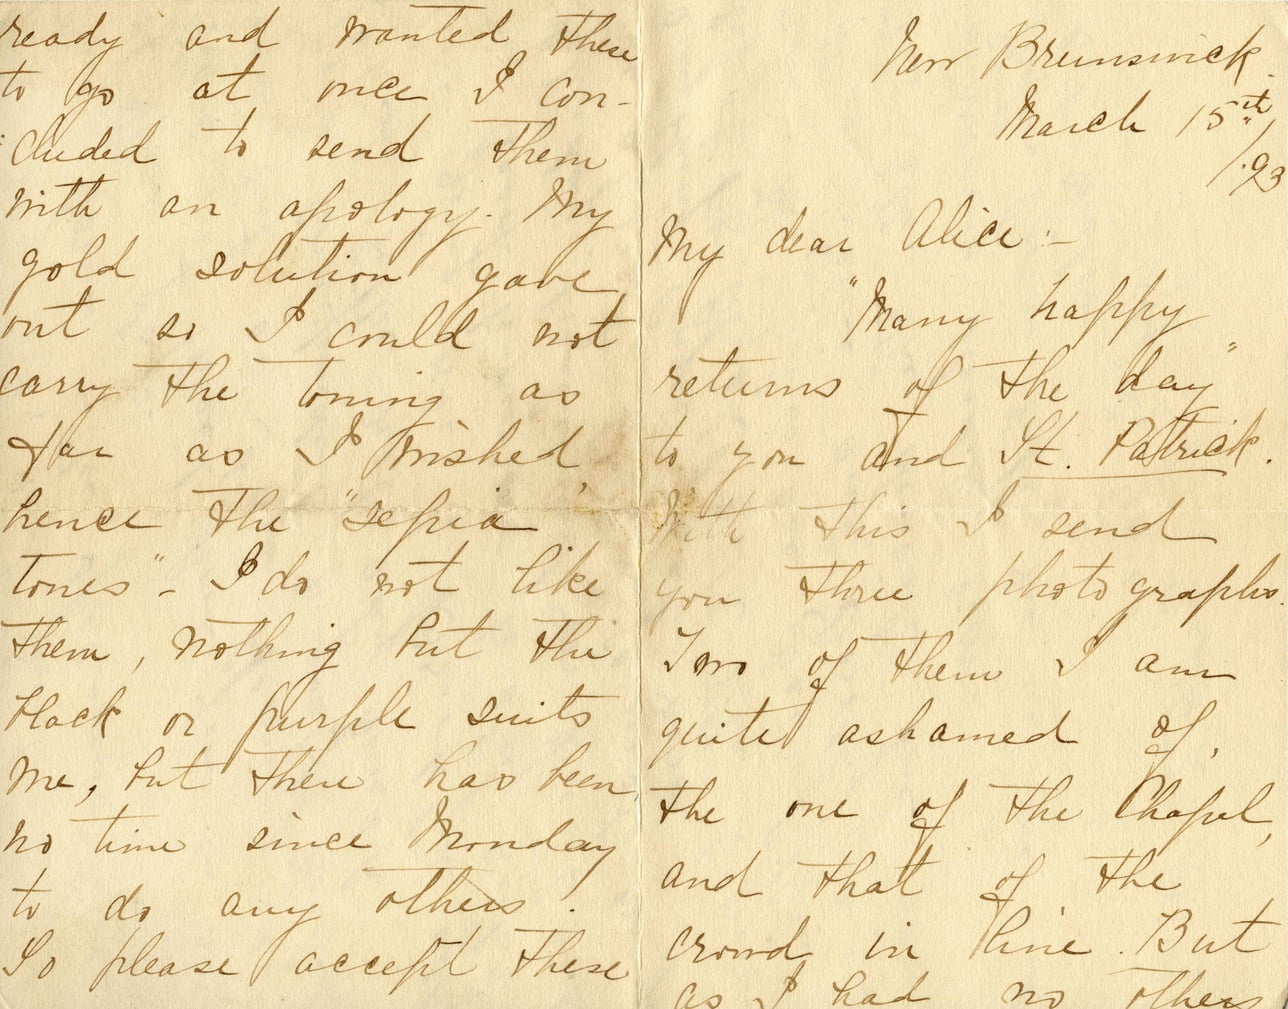 New Brunswick.
March 15th
/93
My dear Alice :-
"Many happy
returns of the day"
to you and St. Patrick.
With this I send
you three photographs.
Two of them I am
quite ashamed of,
the one of the Chapel,
and that of the
crowd in line. But
as I had no others
ready and wanted these
to go at once I con-
cluded to send them
with an apology. My
gold solution gave
out so I could not
carry the toning as
far as I wished,
hence the "sepia
tones" - I do not like
them, nothing but the
black or purple suits
me, but there has been
no time since Monday
to do any others.
So please accept these